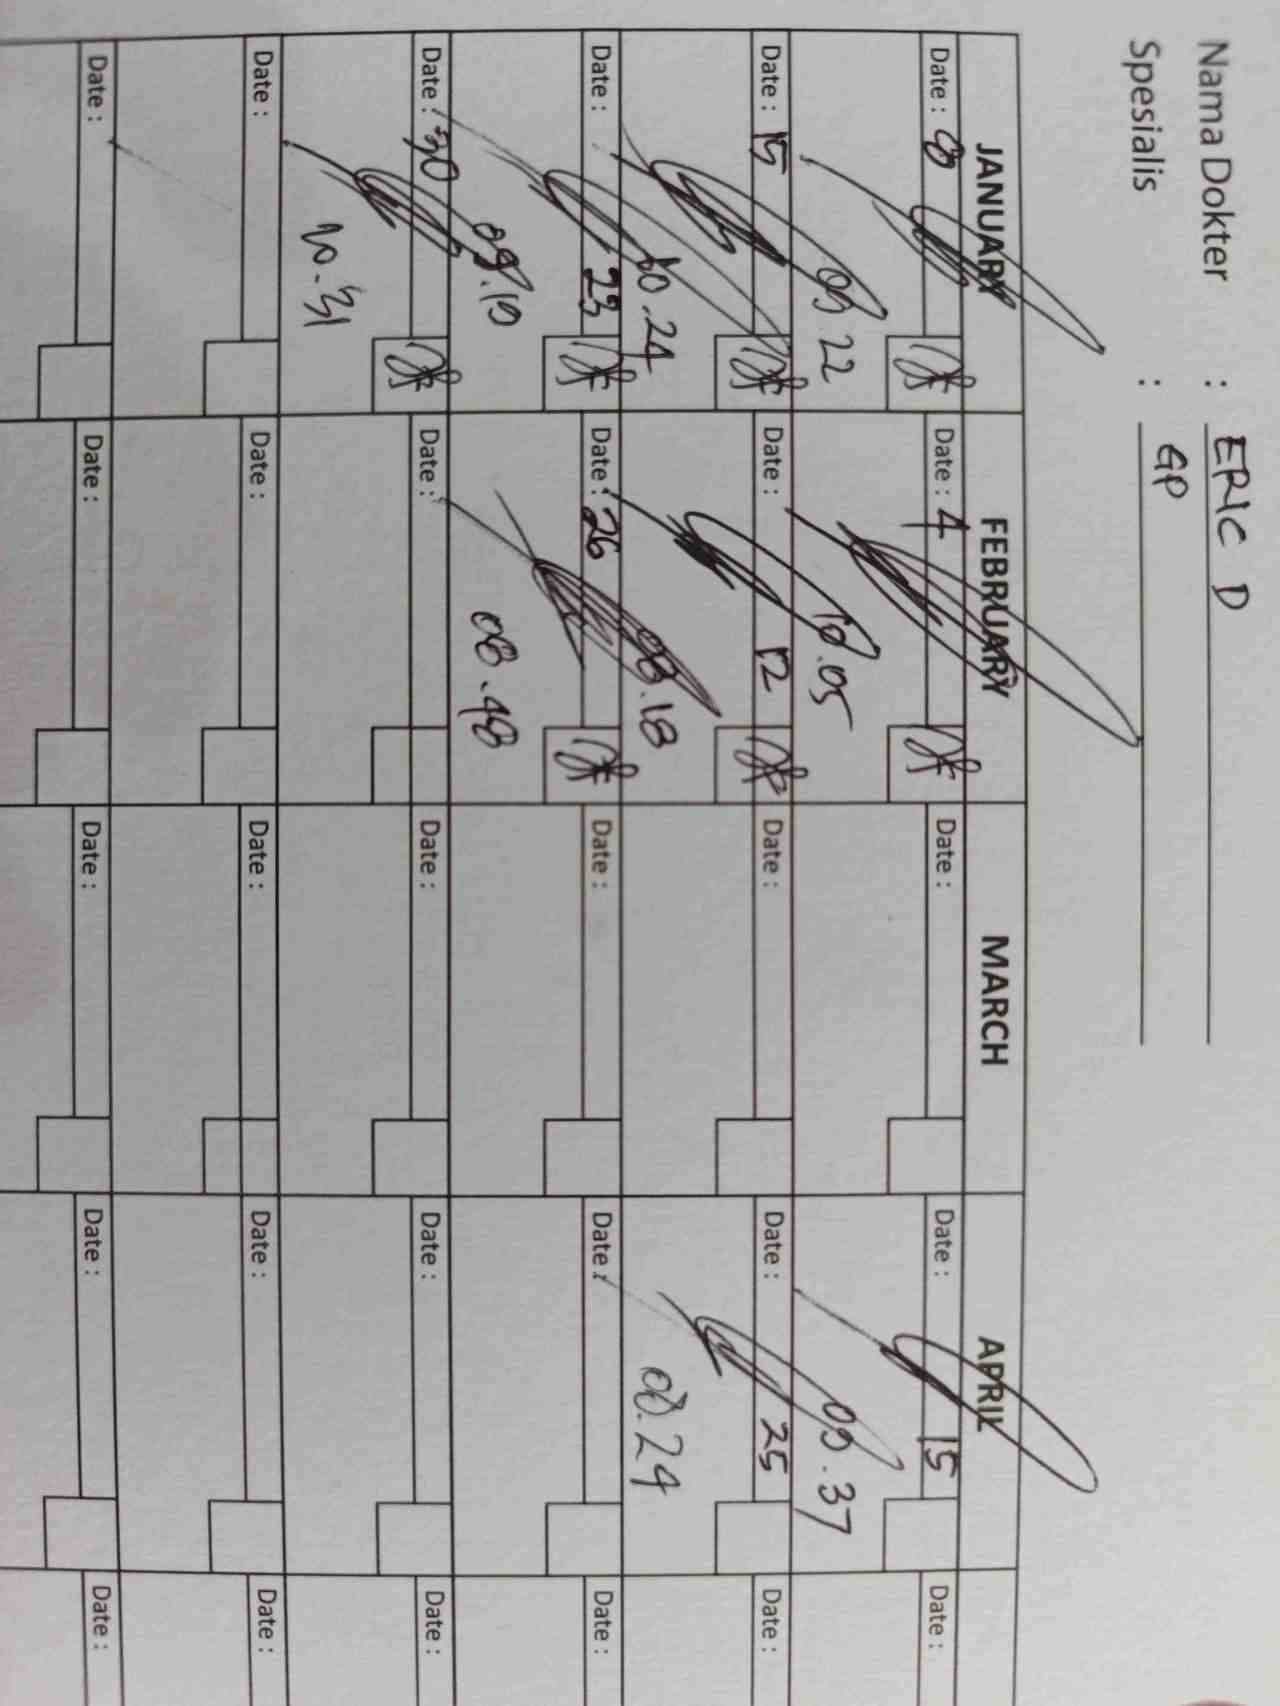 Nama Dokter : ERIC D
Spesialis : GP
JANUARY FEBRUARY MARCH APRIL
Date : 8 Date : 4 Date : Date : 15 Date :
09.22 10.05 09.37
Date : 15 Date : 12 Date : Date : 25 Date :
10.24 08.18 08.24
Date : 23 Date : 26 Date : Date : Date :
09.10 08.48
Date : 30 Date : Date : Date : Date :
10.31
Date : Date : Date : Date : Date :
Date : Date : Date : Date : Date :